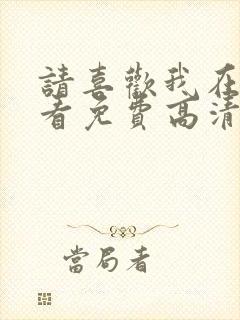 請喜歡我在
看免費高清
當局者